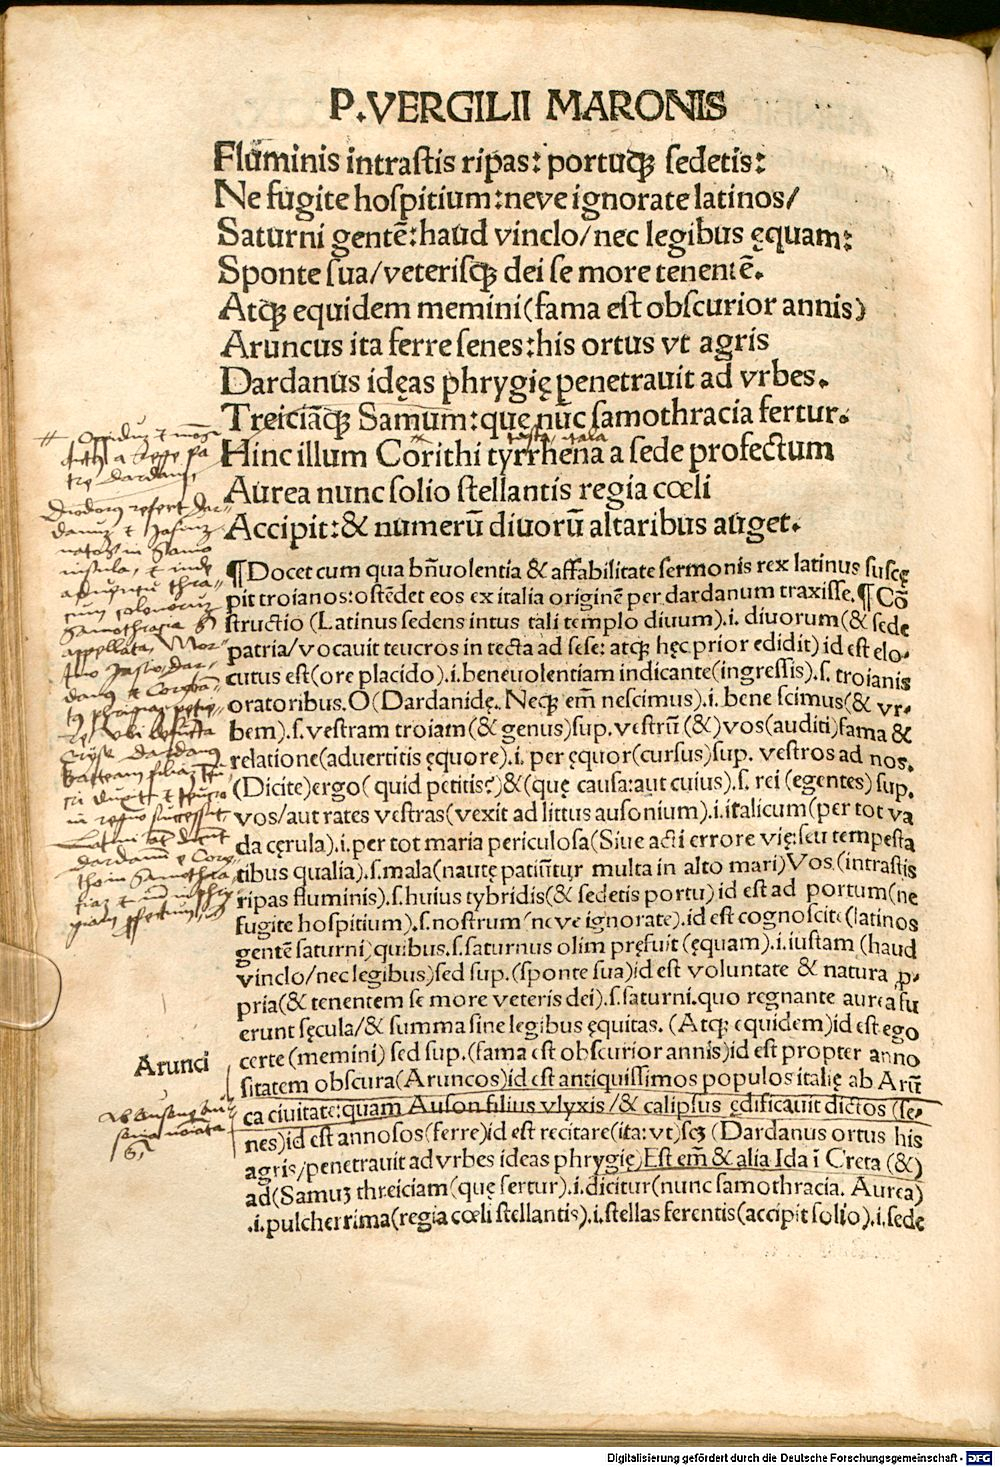 P.VERGILII MARONIS
Fluminis intraſtis ripas: portuq; ſedetis:
Ne fugite hoſpitium: neve ignorate latinos/
Saturni gentē: haud vinclo/nec legibus ęquam:
Sponte ſua/veteriſq; dei ſe more tenentē.
Atq; equidem memini(fama eſt obſcurior annis)
Aruncus ita ferre ſenes:his ortus vt agris
Dardanus idęas phrygię penetravit ad vrbes.
Treiciāq; Samum:quę nūc ſamothracia fertur.
Hinc illum Corithi tyrrhena a ſede profectum
Aurea nunc ſolio ſtellantis regia cœli
Accipit:& numerū diuorū altaribus auget.
¶Docet cum qua bn̄uolentia & affabilitate sermonis rex latinus ſuſcę
pit troianos:oſtēdet eos ex italia originē per dardanum traxiſſe.¶Cō
ſtructio (Latinus sedens intus tali templo diuum).i. diuorum(& ſede
patria/vocauit teucros in tecta ad ſeſe: atq; hęc prior edidit) id eſt elo-
cutus eſt(ore placido).i.beneuolentiam indicante(ingreſſis).ſ. troianis
oratoribus. O(Dardanidę. Neq; em̄ neſcimus).i. bene ſcimus(& vr-
bem).ſ. veſtram troiam(& genus)ſup. veſtrū(&)vos(auditi)fama &
relatione(advertitis ęquore).i. per ęquor(curſus)ſup. veſtros ad nos.
(Dicite)ergo( quid petitis?)&(quę cauſa:aut cuius).ſ. rei (egentes) ſup.
vos/aut rates veſtras(vexit ad littus auſonium).i.italicum(per tot va
da cęrula).i.per tot maria periculoſa(Siue acti errore vię:ſeu tempeſta
tibus qualia).ſ.mala(nautę patiūtur multa in alto mari)Vos (intraſtis
ripas fluminis).ſ.huius tybridis(& ſedetis portu) id eſt ad portum(ne
fugite hoſpitium).ſ.noſtrum(neve ignorate).id eſt cognoſcite(latinos
gentē saturni)quibus.ſ.saturnus olim pręfuit (ęquam).i.iuſtam (haud
vinclo/nec legibus)sed ſup.(ſponte ſua)id eſt voluntate & natura p̱-
pria(& tenentem ſe more veteris dei).ſ.ſaturni.quo regnante aurea fu
erunt sęcula/& ſumma ſine legibus ęquitas. (Atq; equidem)id eſt ego
certe(memini) sed ſup.(fama eſt obſcurior annis)id eſt propter anno
ſitatem obſcura(Aruncos)id eſt antiquiſſimos populos italię ab Arū
ca ciuitate:quam Auſon filius vlyxis/& calipſus ędificauit dictos (ſe-
nes)id eſt annoſos(ferre)id eſt recitare(ita:vt)ſcꝫ (Dardanus ortus his
agris/penetrauit ad vrbes ideas phrygię)Eſt em̄ & alia Ida ī Creta (&)
ad(Samuꝫ threiciam(quę fertur).i.dicitur(nunc ſamothracia. Aurea)
.i.pulcherrima(regia cœli ſtellantis).i.ſtellas ferentis(accipit ſolio).i.ſede
Arunci
Digitalisierung gefördert durch die Deutsche Forschungsgemeinschaft - DFG